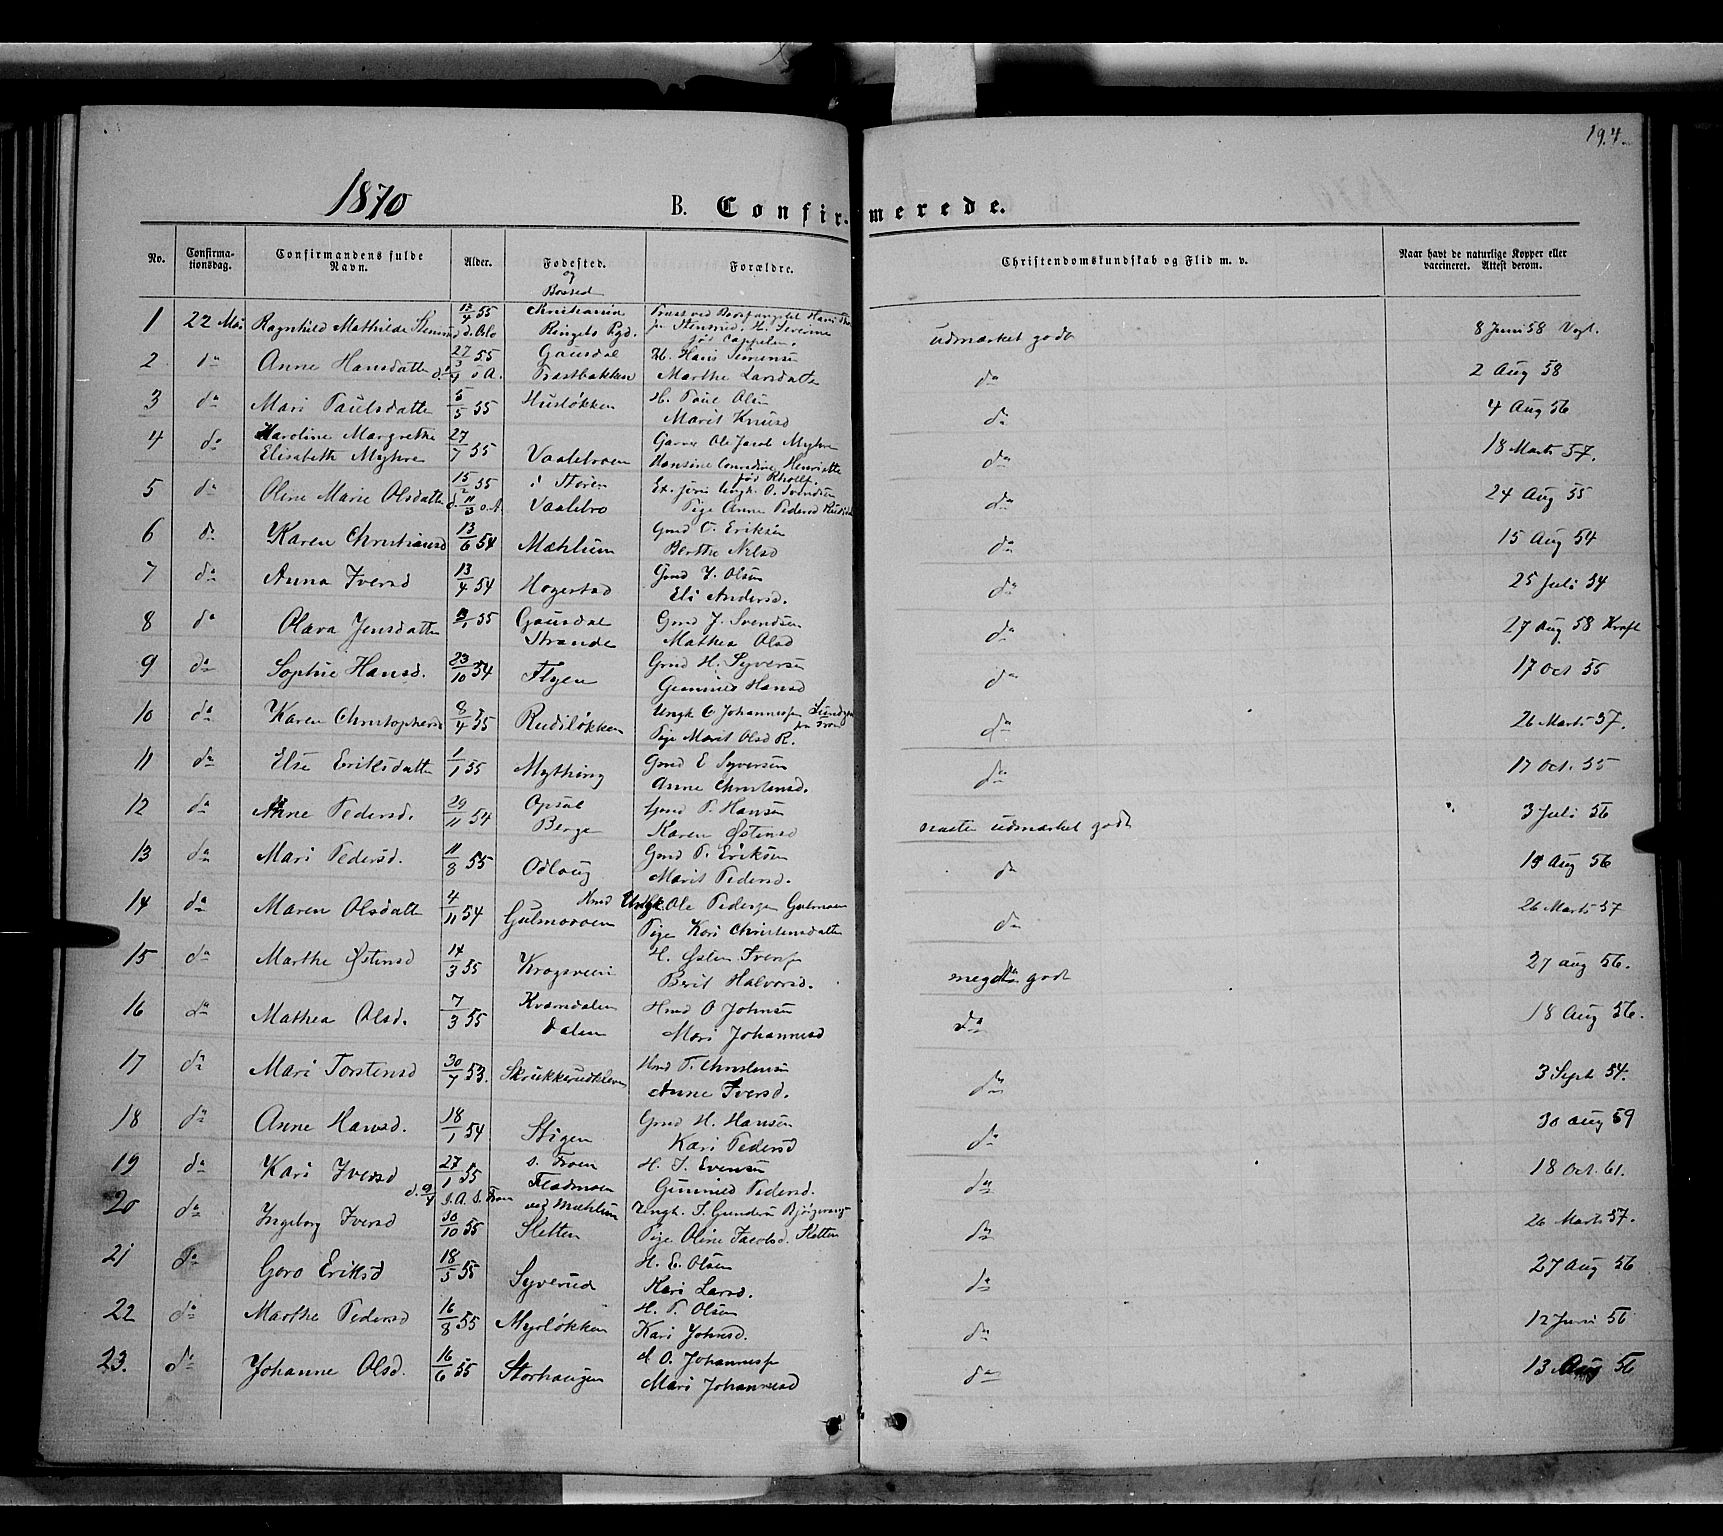 194
1870
B. Confirmerede.
No. Confirmationsdag. Confirmandens fulde Navn. Alder. Fødested. og Bosted Forældre. Christendomskundskab og Flid m. v. Naar havt de naturlige Kopper eller vaccineret. Attest derom.
1 22 Mai Ragnhild Mathilde 55 Christiania udmærket godt 8 Juni 58 Vogt.
Ringebo Pgd.
2 do Anne Hansdatter 27/3 55 Gausdal H. Hans Simensen do 2 Aug 58
Frastbakken Marthe Larsdatter
3 do Mari Paulsdatter 5/5 55 Husløkken H. Poul Olsen do 4 Aug 56
Marit Knusd
4 do Karoline Margrethe 27/7 55 Garver Ole Jacob Myhre do 18 Marts 57.
Elisabeth Myhre Vaalebroen Hansine Conradine Henriette
5 do Oline Marie Olsdatter 15/2 55 i Storen Ungk. O. Svendsen do 24 Aug 55
Vaalebro Pige Anne Pedersd
6 do Karen Christiansd 13/6 54 Mæhlum Gmd C. Eriksen do 15 Aug 54
Berthe Nilsd
7 do Anna Iversd 13/4 54 Hogerstad Gmd I. Olsen do 25 Juli 54
Eli Andersd.
8 do Olava Jensdatter 55 Gausdal Gmd J. Svendsen do 27 Aug 58 Kraft
Strande Mathea Olsd
9 do Sophie Hansd. 23/10 54 Flyen Gmd H. Syversen do 17 Oct 55
Gunnild Hansd
10 do Karen Christophersd 8/4 55 Rudiløkken Ungk C Johannesen do 26 Marts 57.
Pige Marit Olsd R.
11 do Else Eriksdatter 1/1 55 Mytting Gmd E Syversen do 17 Oct. 55
Anne Christensd.
12 do Anne Pedersd. 29/11 54 Opsal Gmd P. Hansen næsten udmærket godt 3 Juli 56
Berge Karen Østensd
13 do Mari Pedersd. 11/8 55 Odloug Gmd P. Eriksen do 19 Aug 56
Marit Pedersd.
14 do Maren Olsdatter 4/11 54 Gulmoroen Ungk. Ole Pedersen do 26 Marts 57
Pige Kari Christensdatter
15 do Marthe Østensd 14/3 55 Krogsveen H. Østen Iversen meget godt 27 Aug 56.
Berit Halvorsd.
16 do Mathea Olsd. 7/3 55 Kvarndalen Hmd O Johnsen do 18 Aug 56.
Dalen Mari Johannesd
17 do Mari Torstensd 30/7 53. Skrukkerudkleven Hmd T. Christensen do 3 Sept 54.
Anne Iversd.
18 do Anne Hansd. 18/1 54 Stigen Gmd H. Hansen do 30 Aug 59
Kari Pedersd
19 do Kari Iversd 27/1 55 S. Fron H. I. Evensen do 18 Oct. 61.
Gunnild Pedersd.
20 do Ingeborg Iversd 30/10 55 ved Mæhlum Ungk. I. Gundersen do 26 Marts 57.
Sletten Pige Oline Jacobsd. Sletten
21 do Goro Eriksd 18/5 55 Syverud H. E. Olsen do 27 Aug 56
Kari Larsd.
22 do Marthe Pedersd 16/8 55 Myrløkken H. P. Olsen do 12 Juni 56
Kari Johnsd.
23. do Johanne Olsd. 16/6 55 Storhaugen H O. Johannesen do 13 Aug 56
Mari Johannesd